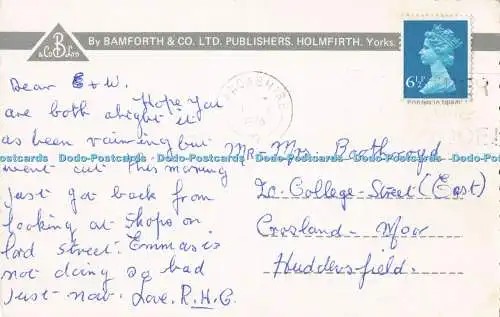 By BAMFORTH & CO. LTD. PUBLISHERS. HOLMFIRTH. Yorks.
B
& Co Ltd
6½P
Printed in Spain
Dear E + W. Hope you
are both alright it
as been raining but
went out this morning
just got back from
looking at shops on
lord street. Emmas is
not doing so bad
just now. Love. R.H.G.
Mr – Mrs. Boothroyd
20 – College – Street (East)
Crosland – Moor
Huddersfield.
Dodo-Postcards Dodo-Postcards Dodo-Postcards Dodo-Postcards Dodo-Postcards Dodo-Postcards